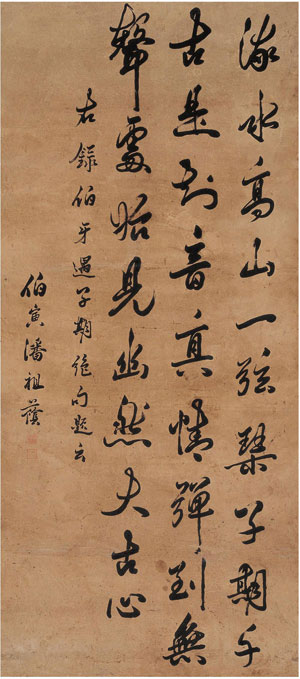 流水高山一張琴子期千
古是知音真情彈到無
聲處始見幽然太古心
右錄伯牙遇子期絕句題云
伯寅潘祖蔭